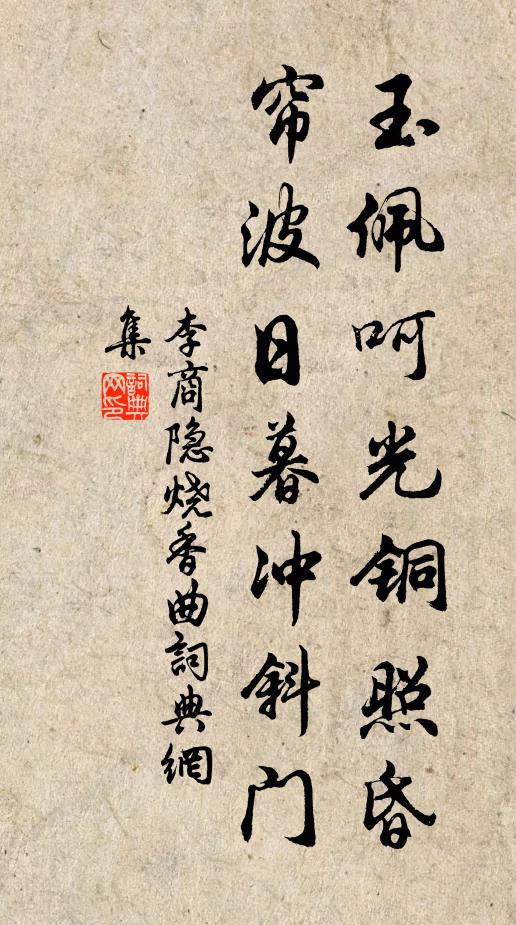 玉佩呵光铜照昏
帘波日暮冲斜门
李商隐烧香曲詞典網
集
詞典
网印